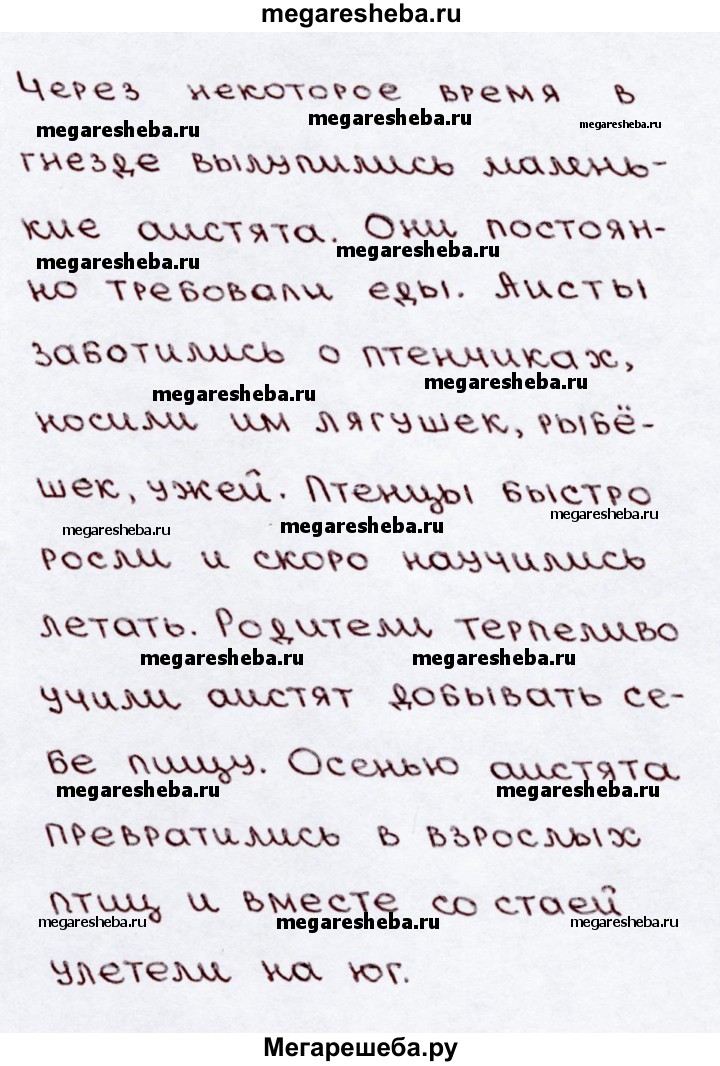 megaresheba.ru
Через некоторое время в
megaresheba.ru megaresheba.ru megaresheba.ru
гнезде вылупились малень-
кие аистята. Они постоян-
megaresheba.ru megaresheba.ru
но требовали еды. Аисты
заботились о птенчиках,
megaresheba.ru megaresheba.ru
носили им лягушек, рыбё-
шек, ужей. Птенцы быстро
megaresheba.ru megaresheba.ru megaresheba.ru
росли и скоро научились
летать. Родители терпеливо
megaresheba.ru megaresheba.ru
учили аистят добывать се-
бе пищу. Осенью аистята
megaresheba.ru megaresheba.ru
превратились в взрослых
птиц и вместе со стаей
megaresheba.ru megaresheba.ru megaresheba.ru
улетели на юг.
Мегарешеба.ру